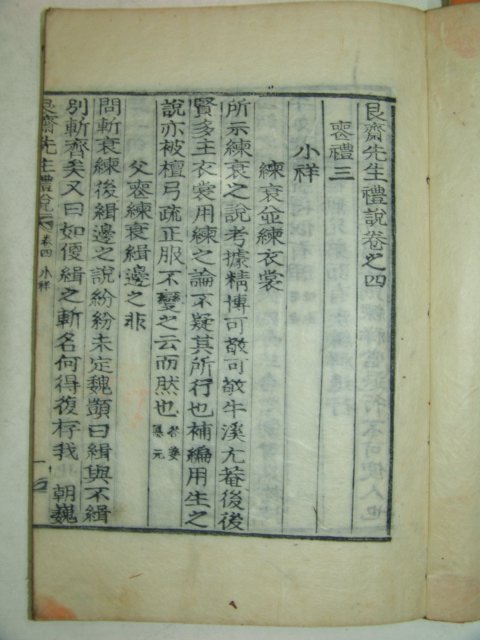 艮齋先生禮說卷之四
喪禮三
小祥
練衰並練衣裳
所示練衰之說考據精博可敬可敬牛溪尤菴後後
賢多主衣裳用練之論不疑其所行也補編用生之
說亦被檀弓疏正服不變之云而然也答姜
父喪練衰緝邊之非
問斬衰練後緝邊之說紛紛未定魏顥曰緝與不緝
別斬齊矣又曰如復緝之斬名何得復存我 朝巍
艮齋先生禮說 卷四 小祥